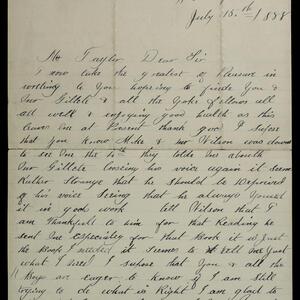 July 15th / 888
Mr Taylor Dear Sir
I now take the greatest of Pleasure in
writing to You hopeing to finde You &
our Gillett & all the Yoke fellows all
well & enjoying good health as this
leaves me at Present thank god I Supose
that you know Mike & our Wilson was down
to See me the 4th they tolde me about
our Gillete Loosing his voice again it Seems
Rather Strange that he Should be Deprived
of his voice Seeing that he always Used
it in good work tell Wilson that I
am thankfull to him for that Reading he
Sent me Especially for that Book it is Just
the Book I wanted it Seemes to tell me Just
what I need I Supose that You & all the
Boys are eager to Know if I am Still
trying to do what is Right I am glad to